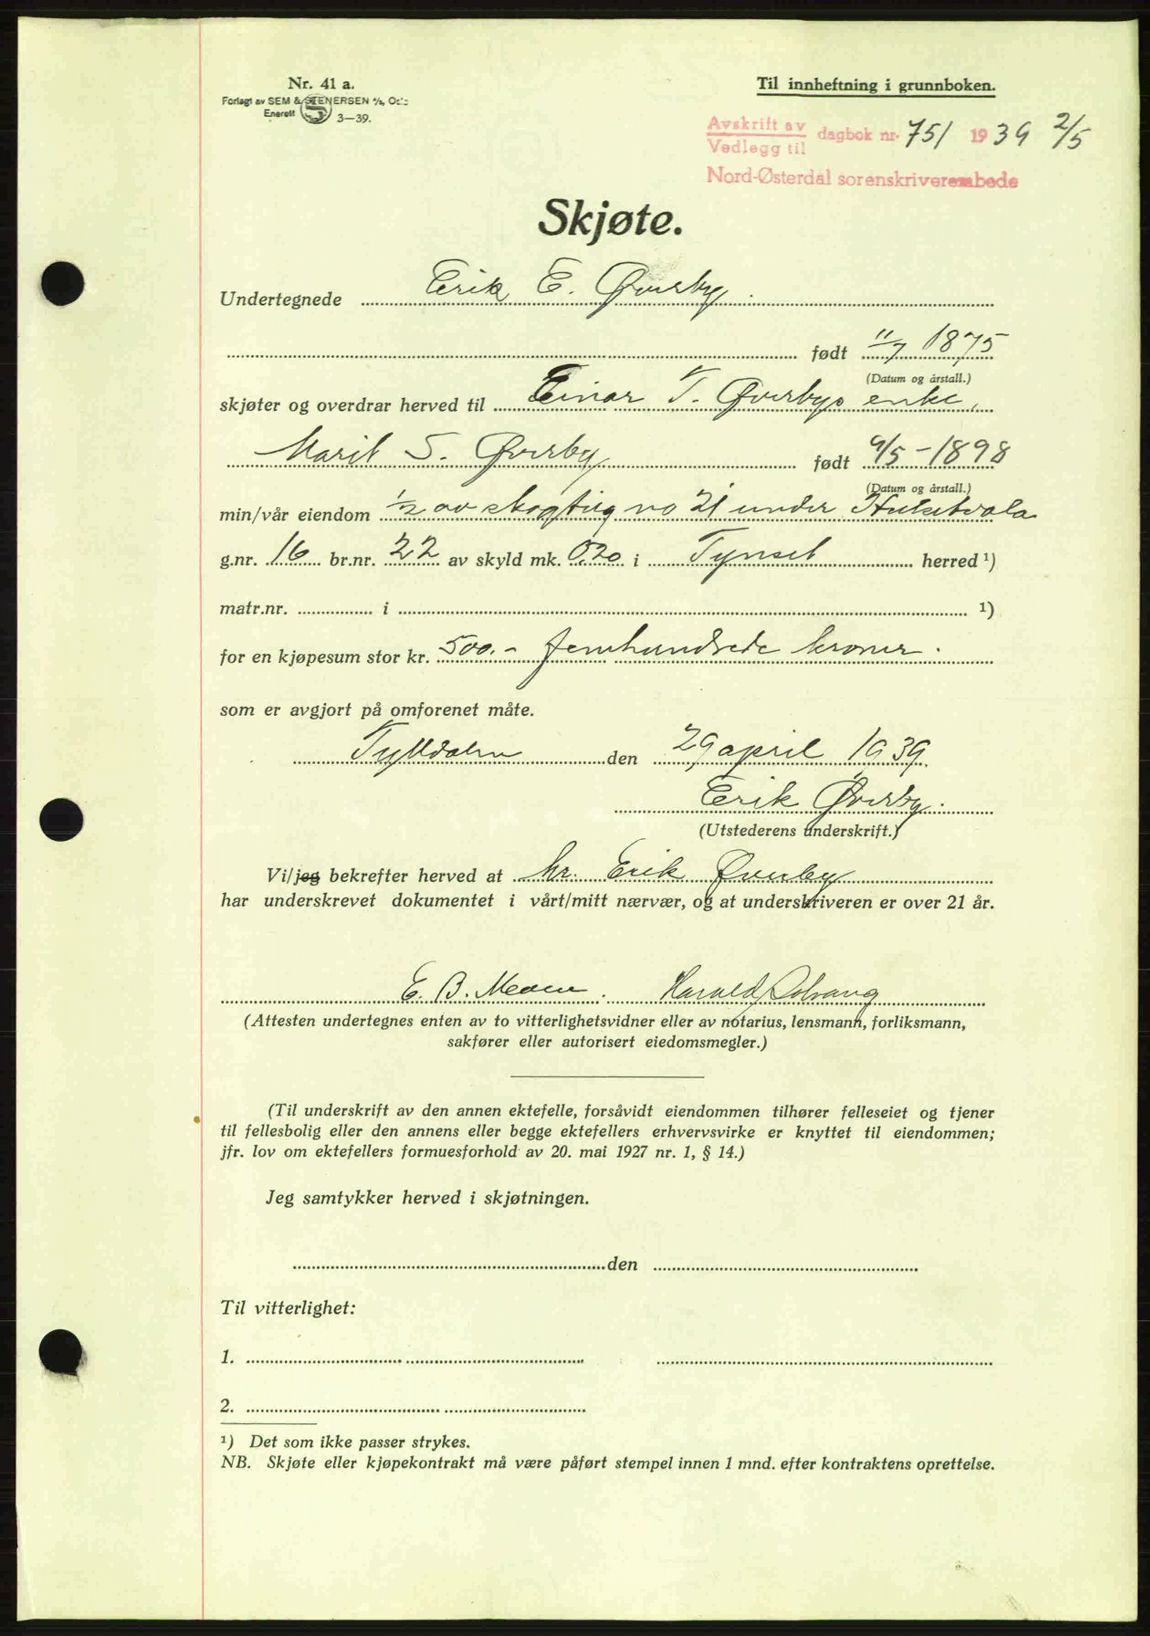 Nr. 41 a.
Til innheftning i grunnboken.
Forlagt av SEM & STENERSEN A/S, Oslo
Enerett 3—39.
Avskrift av
Vedlegg til
dagbok nr. 751 1939 2/5
Nord-Østerdal sorenskriverembede
Skjøte.
Undertegnede Erik E. Øverby.
født 11/7 1875
(Datum og årstall.)
skjøter og overdrar herved til Einar T. Øverbys enke,
Marit S. Øverby født 9/5-1898
(Datum og årstall.)
min/vår eiendom 1/2 av skogteig no 21 under
g.nr. 16 br.nr. 22 av skyld mk. 0.20 i Tynset herred ¹)
matr.nr. i ¹)
for en kjøpesum stor kr. 500.- femhundrede kroner.
som er avgjort på omforenet måte.
Tylldalen den 29 april 1939.
Erik Øverby.
(Utstederens underskrift.)
Vi/jeg bekrefter herved at hr. Erik Øverby
har underskrevet dokumentet i vårt/mitt nærvær, og at underskriveren er over 21 år.
E. B. Moen. Harald
(Attesten undertegnes enten av to vitterlighetsvidner eller av notarius, lensmann, forliksmann,
sakfører eller autorisert eiedomsmegler.)
(Til underskrift av den annen ektefelle, forsåvidt eiendommen tilhører felleseiet og tjener
til fellesbolig eller den annens eller begge ektefellers erhvervsvirke er knyttet til eiendommen;
jfr. lov om ektefellers formuesforhold av 20. mai 1927 nr. 1, § 14.)
Jeg samtykker herved i skjøtningen.
den
Til vitterlighet:
1.
2.
¹) Det som ikke passer strykes.
NB. Skjøte eller kjøpekontrakt må være påført stempel innen 1 mnd. efter kontraktens oprettelse.